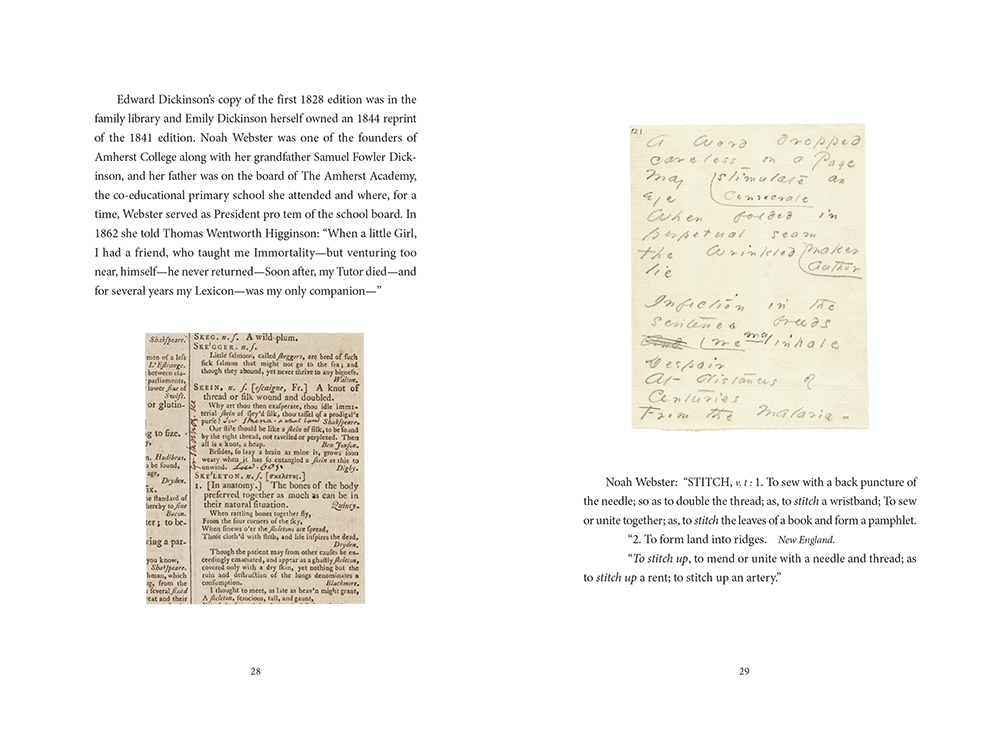 Edward Dickinson’s copy of the first 1828 edition was in the
family library and Emily Dickinson herself owned an 1844 reprint
of the 1841 edition. Noah Webster was one of the founders of
Amherst College along with her grandfather Samuel Fowler Dick-
inson, and her father was on the board of The Amherst Academy,
the co-educational primary school she attended and where, for a
time, Webster served as President pro tem of the school board. In
1862 she told Thomas Wentworth Higginson: “When a little Girl,
I had a friend, who taught me Immortality—but venturing too
near, himself—he never returned—Soon after, my Tutor died—and
for several years my Lexicon—was my only companion—”
Shakſpeare.
men of a leſs
L'Eſtrange.
between cla-
parliaments,
lower ſize of
Swift.
or glutin-
g to ſize.
Hudibras.
o be found,
age,
Dryden.
ix.
e ſtandard of
hereby to ſine
Bacon.
ter; to be-
ving a par-
you know,
Shakſpeare.
hmau, which
ig, from the
ſeveral ſized
reat and their
SKEG. n. ſ. A wild plum.
SKE'GGER. n. ſ.
Little ſalmons, called ſkeggers, are bred of ſuch
ſick ſalmon that might not go to the ſea; and
though they abound, yet never thrive to any bigneſs.
Walton.
SKEIN. n. ſ. [eſcaigne, Fr.] A knot of
thread or ſilk wound and doubled.
Why art thou then exaſperate, thou idle imma-
terial ſkein of ſley'd ſilk, thou taſſel of a prodigal's
purſe? Shakſpeare.
Our ſtile ſhould be like a ſkein of ſilk, to be found
by the right thread, not ravelled or perplexed. Then
all is a knot, a heap. Ben Jonſon.
Beſides, ſo lazy a brain as mine is, grows ſoon
weary when it has ſo entangled a ſkein as this to
unwind. Digby.
SKE'LETON. n. ſ. [σκελετος.]
1. [In anatomy.] The bones of the body
preſerved together as much as can be in
their natural ſituation. Quincy.
When rattling bones together fly,
From the four corners of the ſky,
When ſinews o'er the ſkeletons are ſpread,
Thoſe cloth'd with fleſh, and life inſpires the dead.
Dryden.
Though the patient may from other cauſes be ex-
ceedingly emaciated, and appear as a ghaſtly ſkeleton,
covered only with a dry ſkin, yet nothing but the
ruin and deſtruction of the lungs denominates a
conſumption. Blackmore.
I thought to meet, as late as heav'n might grant,
A ſkeleton, ferocious, tall, and gaunt,
28
121
A Word dropped
careless on a Page
May stimulate an
eye Consecrate
When folded in
perpetual seam
the Wrinkled Maker
lie Author
Infection in the
sentence breeds
we may inhale
Despair
At distances of
Centuries
From the Malaria -
Noah Webster: “STITCH, v. t : 1. To sew with a back puncture of
the needle; so as to double the thread; as, to stitch a wristband; To sew
or unite together; as, to stitch the leaves of a book and form a pamphlet.
“2. To form land into ridges. New England.
“To stitch up, to mend or unite with a needle and thread; as
to stitch up a rent; to stitch up an artery.”
29